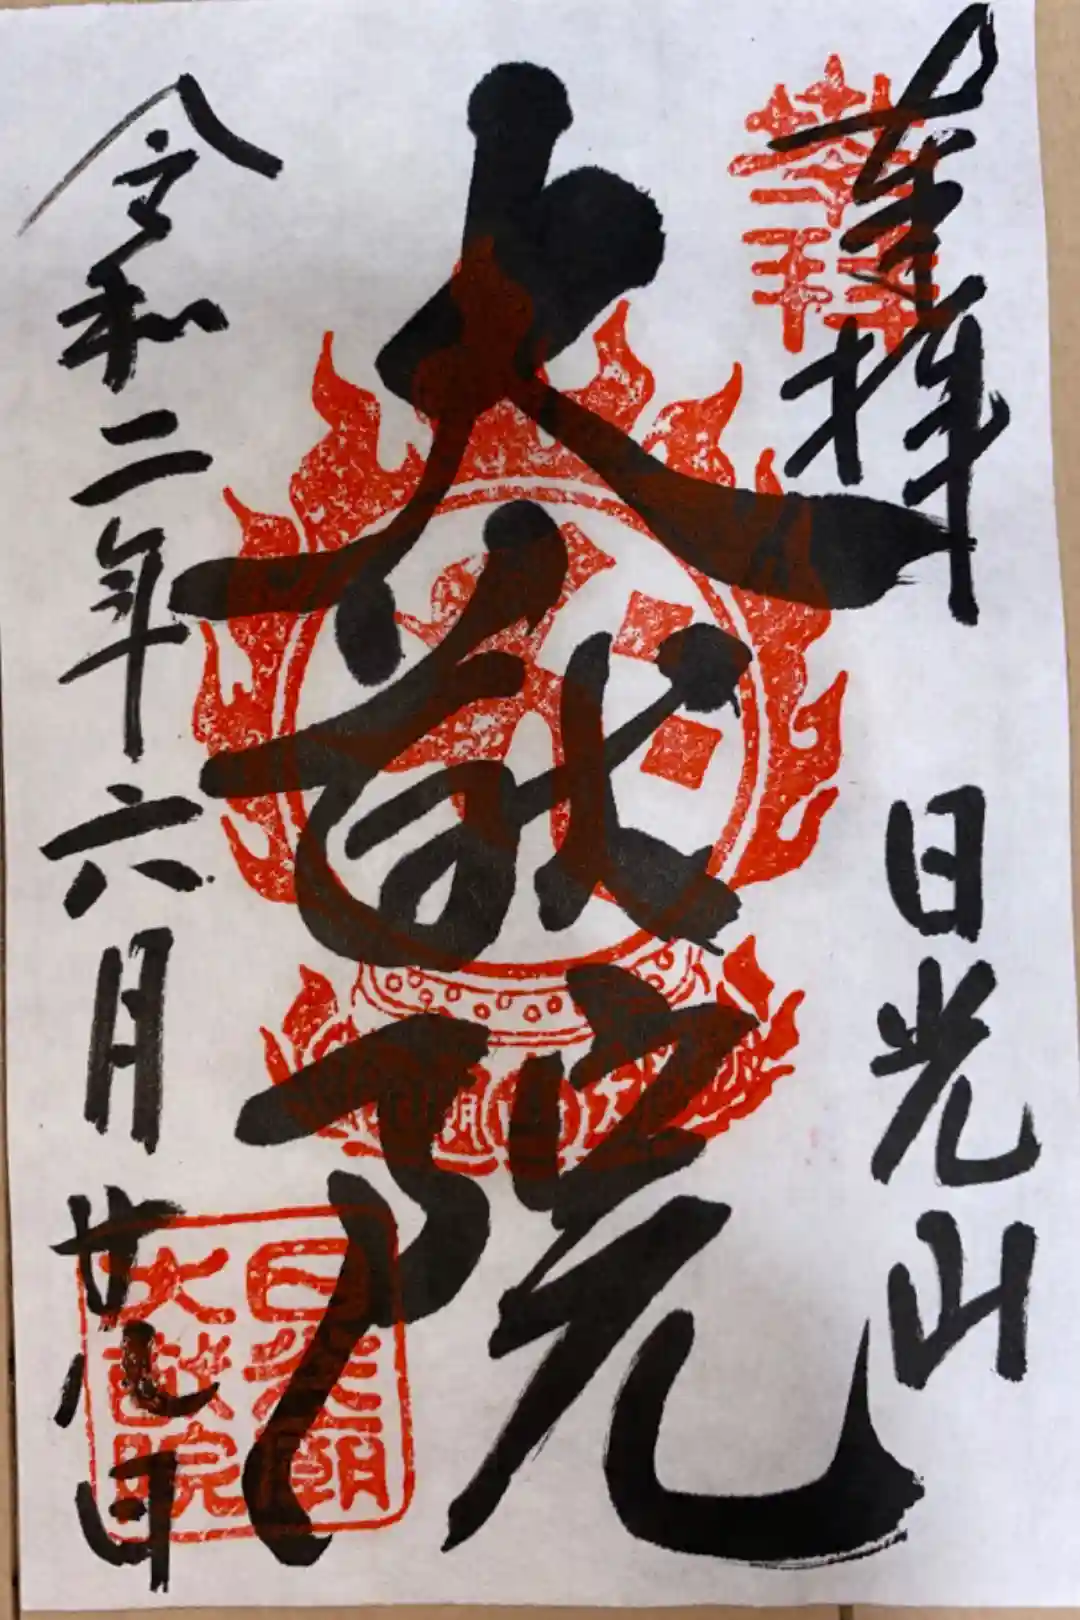 奉拝 日光山
大猷院
令和二年六月廿八日
日光廟
大猷院